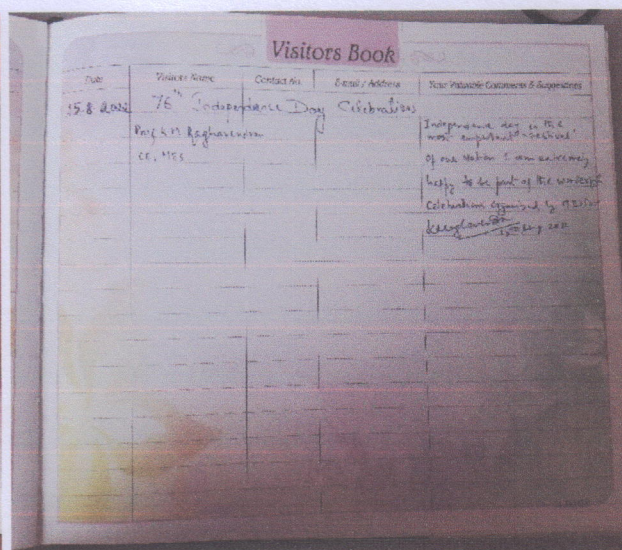 Visitors Book
Date Visitors Name Contact No. E-mail / Address Your Valuable Comments & Suggestions
15.8.2022 76th Independence Day Celebrations
Prof K M Raghavendra
CE, MES
Independence day is the
most important "festival"
of our Nation I am extremely
happy to be part of the wonderful
Celebrations organised by